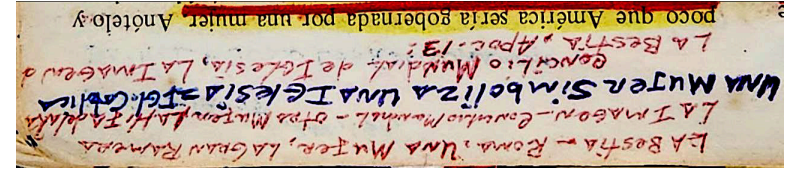 LA BESTIA – ROMA, UNA MUJER, LA GRAN RAMERA
LA IMAGEN – Concilio Mundial – otra Mujer, LA H.
UNA MUJER Simboliza UNA IGLESIA = Igl. Católica
Concilio Mundial de Iglesia, LA IMAGEN d
LA BESTIA, Apoc. 13:
poco que América sería gobernada por una mujer. Anótelo y